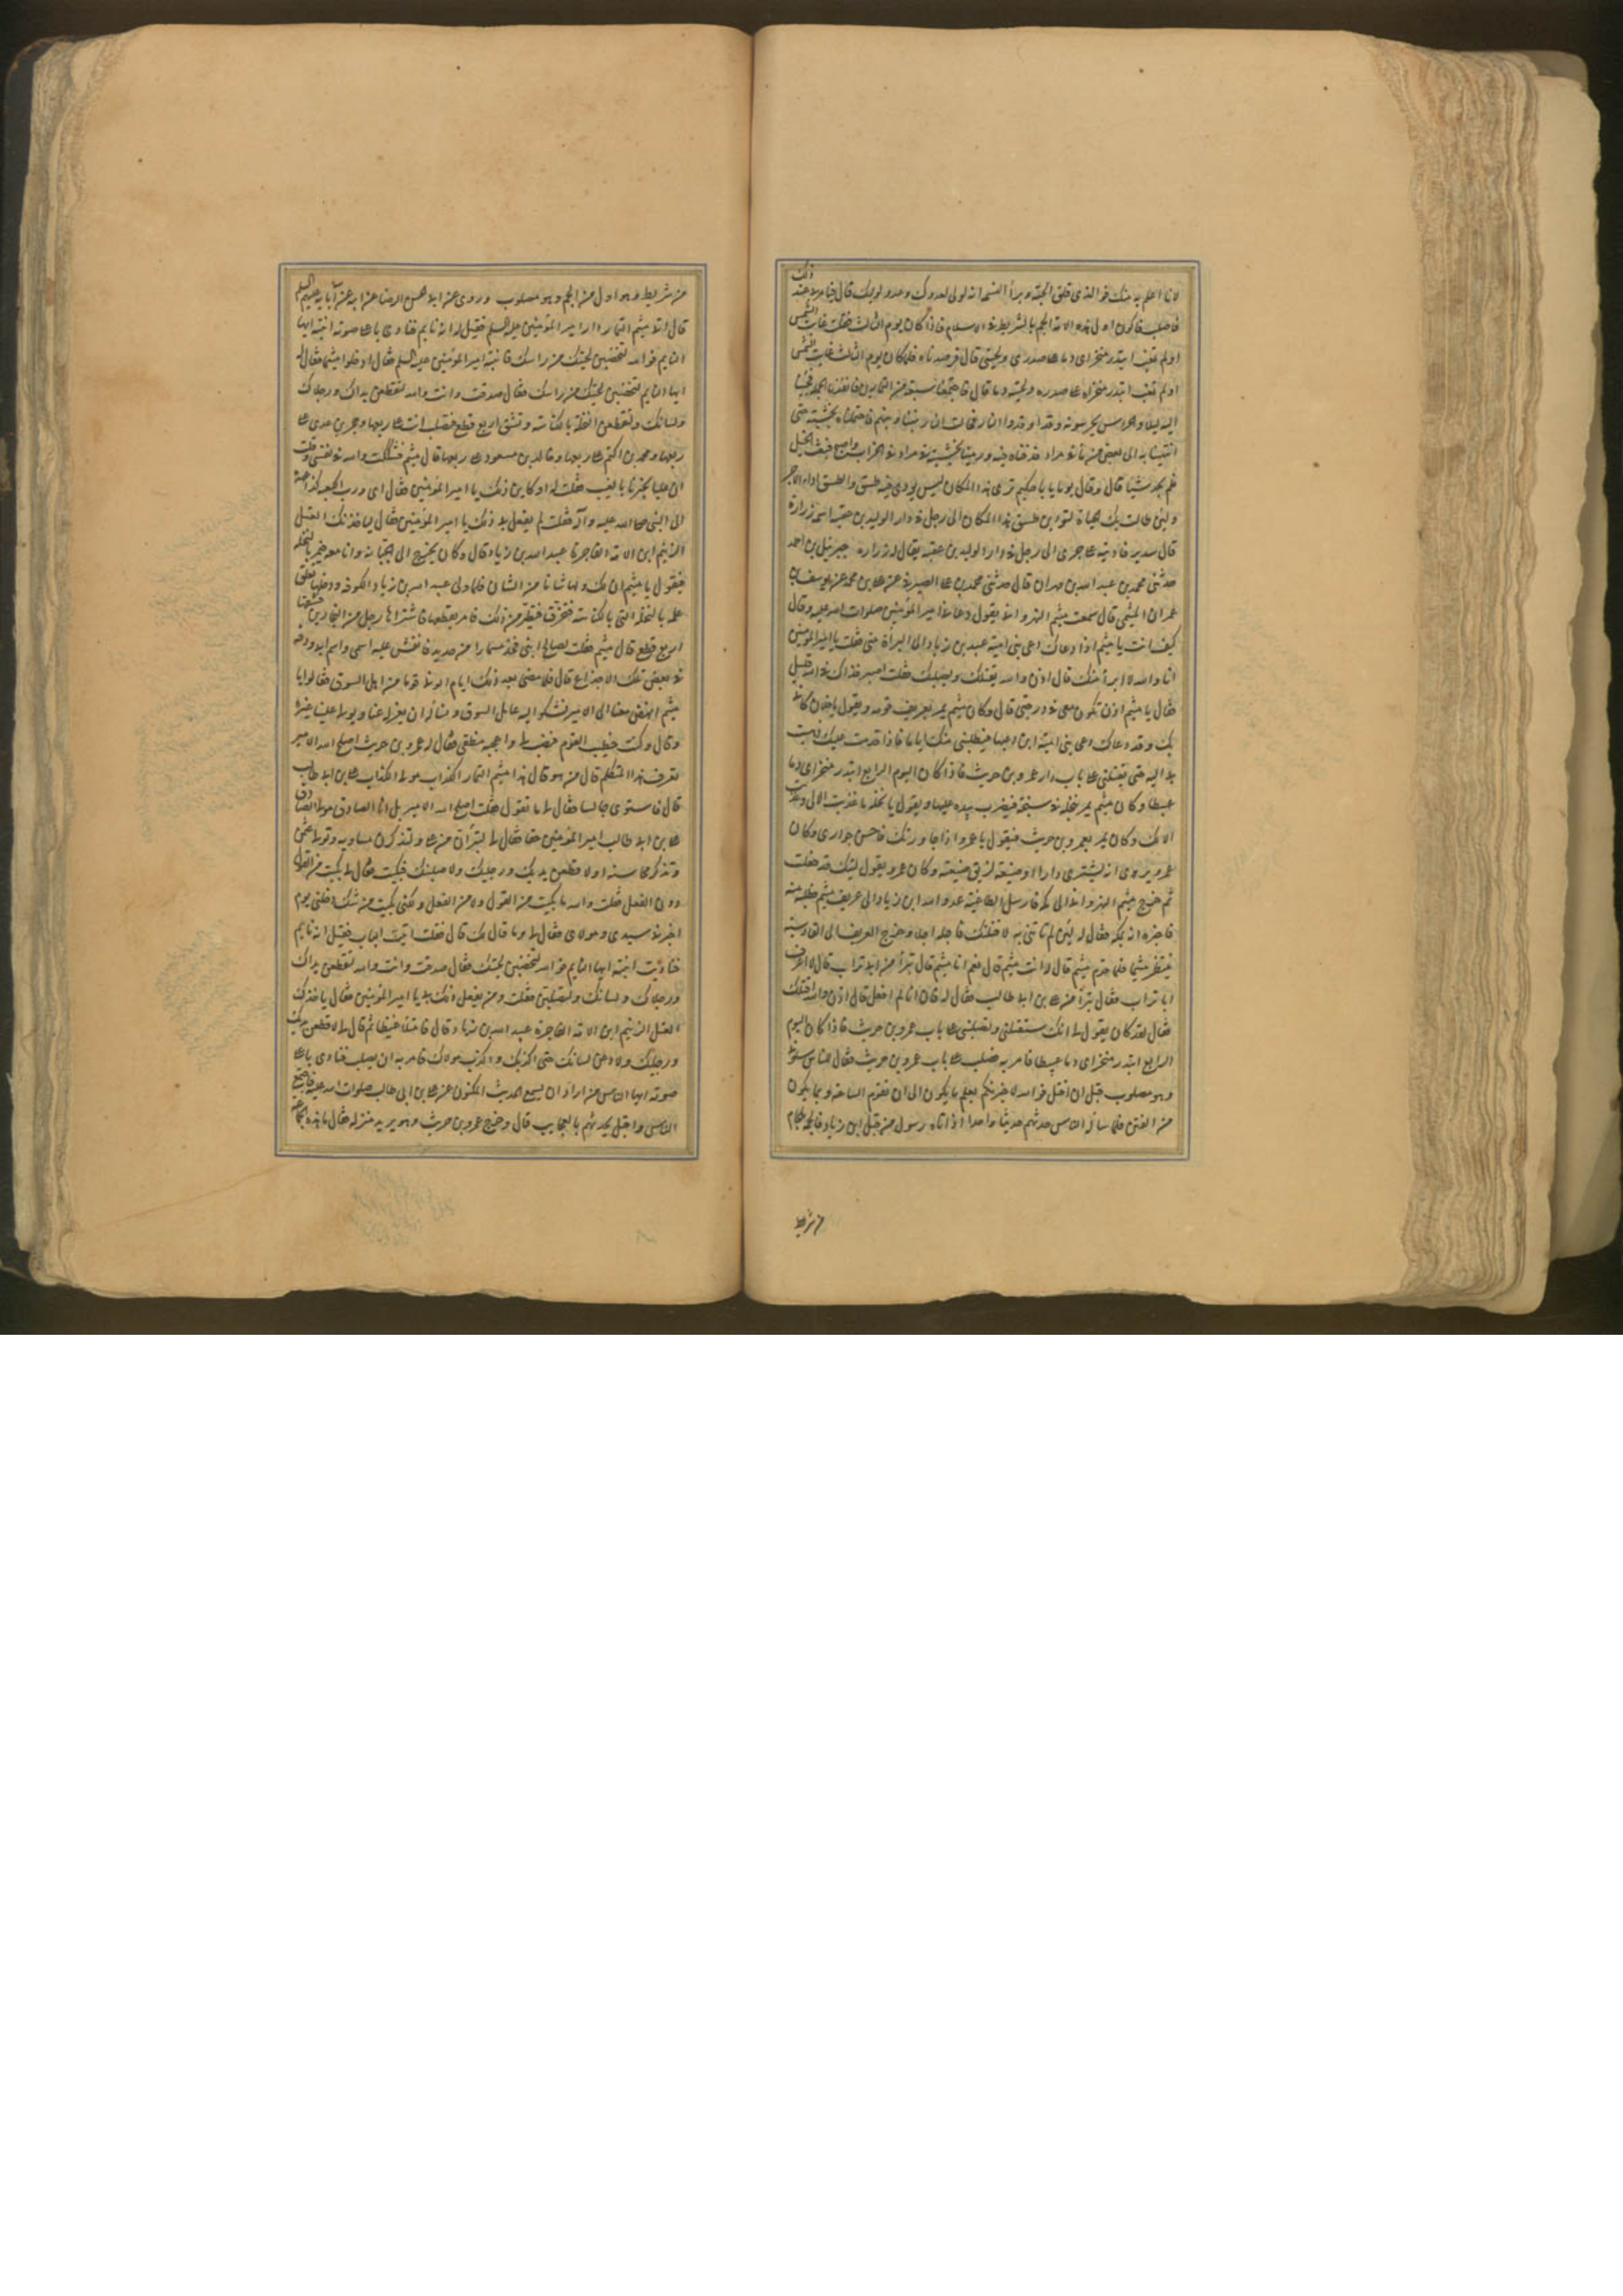 لانا اعلم به منك فوالذي فلق الحبة وبرأ النسمة انه لولي لعدوك وعدو لوليك قال فيامر بي عند ذلك
فاصلب فاكون اول هذه الامة الجم بالشريط في الاسلام فاذا كان يوم الثالث فقلت غابت الشمس
اولم تغب ابتدر منخراي دما على صدري ولحيتي قال فرصدناه فلما كان يوم الثالث غابت الشمس
اولم تغب ابتدر منخراه على صدره ولحيته دما قال فاجتمعنا سبعة من التمارين فاتعدنا لحمله فجئنا
اليه ليلا والحراس يحرسونه وقد اوقدوا النار فحالت النار بيننا وبينهم فاحتملناه بخشبته حتى
انتهينا به الى فيض من ماء في مراد فدفناه فيه ورمينا بخشبته في مراد في الخراب واصبح فبعث الخيل
فلم يجد شيئا قال وقال يوما يا با حكيم ترى هذا المكان ليس يودى فيه طسق والطسق اداء الاجر
ولئن طالت بك الحياة لتودين طسق هذا المكان الى رجل في دار الوليد بن عقبة اسمه زرارة
قال سدير فاديته على خزي الى رجل في دار الوليد بن عقبه يقال له زراره جبرئيل بن احمد
حدثني محمد بن عبد الله بن مهران قال حدثني محمد بن علي الصيرفي عن علي بن محمد عن يوسف بن
عمران الميثمي قال سمعت ميثم النهرواني يقول دعاني امير المؤمنين صلوات الله عليه وقال
كيف انت يا ميثم اذا دعاك دعي بني امية عبيد بن زياد الى البرأة مني فقلت يا امير المؤمنين
انا والله لا ابرأ منك قال اذن والله يقتلك ويصلبك فقلت اصبر فذاك في الله قليل
فقال يا ميثم اذن تكون معي في درجتي قال وكان ميثم يمر بعريف قومه ويقول يا فلان كاني
بك وقد دعاك دعي بني امية ابن دعيها فيطلبني منك اياما فاذا قدمت عليك ذهبت
بي اليه حتى يقتلني على باب دار عمرو بن حريث فاذا كان اليوم الرابع ابتدر منخراي دما
عبيطا وكان ميثم يمر بنخلة في سبخة فيضرب بيده عليها ويقول يا نخلة ما غذيت الا لي وما غذيت
الا لك وكان يمر بعمرو بن حريث فيقول يا عمرو اذا جاورتك فاحسن جواري وكان
عمرو يرى انه يشتري دارا او ضيعة لزيق ضيعته وكان عمرو يقول ليتك قد فعلت
ثم خرج ميثم النهرواني الى مكة فارسل الطاغية عدو الله ابن زياد الى عريف ميثم فطلبه منه
فاخبره انه بمكة فقال له لئن لم تاتني به لاقتلنك فاجله اجلا وخرج العريف الى القادسية
ينتظر ميثما فلما قدم ميثم قال له انت ميثم قال نعم انا ميثم قال تبرأ من ابي تراب قال لا اعرف
ابا تراب فقال تبرأ من علي بن ابي طالب فقال له فان انا لم افعل قال اذن والله اقتلك
فقال لقد كان يقول لي انك ستقتلني وتصلبني على باب عمرو بن حريث فاذا كان اليوم
الرابع ابتدر منخراي دما عبيطا فامر به فصلب على باب عمرو بن حريث فقال للناس سلوني
وهو مصلوب قبل ان اقتل فوالله لاخبرنكم بعلم ما يكون الى ان تقوم الساعة وبما يكون
من الفتن فلما ساله الناس حدثهم حديثا واحدا اذ اتاه رسول من قبل ابن زياد فالجمه بلجام
من شريط
من شريط وهو اول من الجم وهو مصلوب وروى عن ابي الحسن الرضا عن ابيه عن آبايه عليهم السلم
قال اتى ميثم التمار دار امير المؤمنين عليه السلم فقيل له انه نايم فنادى باعلى صوته انتبه ايها
النايم فوالله لتخضبن لحيتك من راسك فانتبه امير المؤمنين عليه السلم فقال ادخلوا ميثما فقال له
ايها النايم لتخضبن لحيتك من راسك فقال صدقت وانت والله لتقطعن يداك ورجلاك
ولسانك ولتقطعن النخلة بالكناسة وتشق اربع قطع فتصلب انت على ربعها وحجر بن عدي على
ربعها ومحمد بن اكتم على ربعها وخالد بن مسعود على ربعها قال ميثم فشككت والله في نفسي وقلت
ان عليا يخبرنا بالغيب فقلت له او كاين ذلك يا امير المؤمنين فقال اي ورب الكعبه كذا عهده
الى النبي صلى الله عليه وآله فقلت لم يفعل بي ذلك يا امير المؤمنين فقال لياخذنك العتل
الزنيم ابن الامة الفاجرة عبيد الله بن زياد قال وكان يخرج الى الجبانة وانا معه فيمر بالنخلة
فيقول يا ميثم ان لك ولها شانا من الشان فلما ولي عبيد الله بن زياد الكوفة ودخلها تعلق
علمه بالنخلة التي بالكناسة فتخرق فتطير من ذلك فامر بقطعها فاشتراها رجل من النجارين فشقها
اربع قطع قال ميثم فقلت لصالح ابني فخذ مسمارا من حديد فانقش عليه اسمي واسم ابي ودقه
في بعض تلك الاجذاع قال فلما مضى بعد ذلك ايام اتوني قوما من اهل السوق فقالوا يا
ميثم انهض معنا الى الامير نشكو اليه عامل السوق ونساله ان يعزله عنا ويولي علينا غيره
وقال وكنت خطيب القوم فنصت لي واعجبه منطقي فقال له عمرو بن حريث اصلح الله الامير
تعرف هذا المتكلم قال من هو قال هذا ميثم التمار الكذاب مولى الكذاب علي بن ابي طالب
قال فاستوى جالسا فقال لي ما تقول فقلت اصلح الله الامير بل انا الصادق مولى الصادق
علي بن ابي طالب امير المؤمنين حقا فقال لي لتبرأن من علي ولتذكرن مساويه وتولى عثمن
وتذكر محاسنه او لاقطعن يديك ورجليك ولاصلبنك فبكيت فقال لي بكيت من القول
دون الفعل فقلت والله ما بكيت من القول ولا من الفعل ولكني بكيت من شك دخلني يوم
اخبرني سيدي ومولاي فقال لي وما قال لك قال فقلت اتيت الباب فقيل انه نايم
فناديت انتبه ايها النايم فوالله لتخضبن لحيتك فقال صدقت وانت والله لتقطعن يداك
ورجلاك ولسانك ولتصلبن فقلت ومن يفعل ذلك بي يا امير المؤمنين فقال ياخذك
العتل الزنيم ابن الامة الفاجرة عبيد الله بن زياد قال فامتلأ غيظا ثم قال لي لاقطعن يديك
ورجليك ولادعن لسانك حتى اكذبك واكذب مولاك فامر به ان يصلب فنادى باعلى
صوته ايها الناس من اراد ان يسمع الحديث المكنون عن علي بن ابي طالب صلوات الله عليه فاجتمع
الناس واقبل يحدثهم بالعجايب قال وخرج عمرو بن حريث وهو يريد منزله فقال ما هذه الجماعة